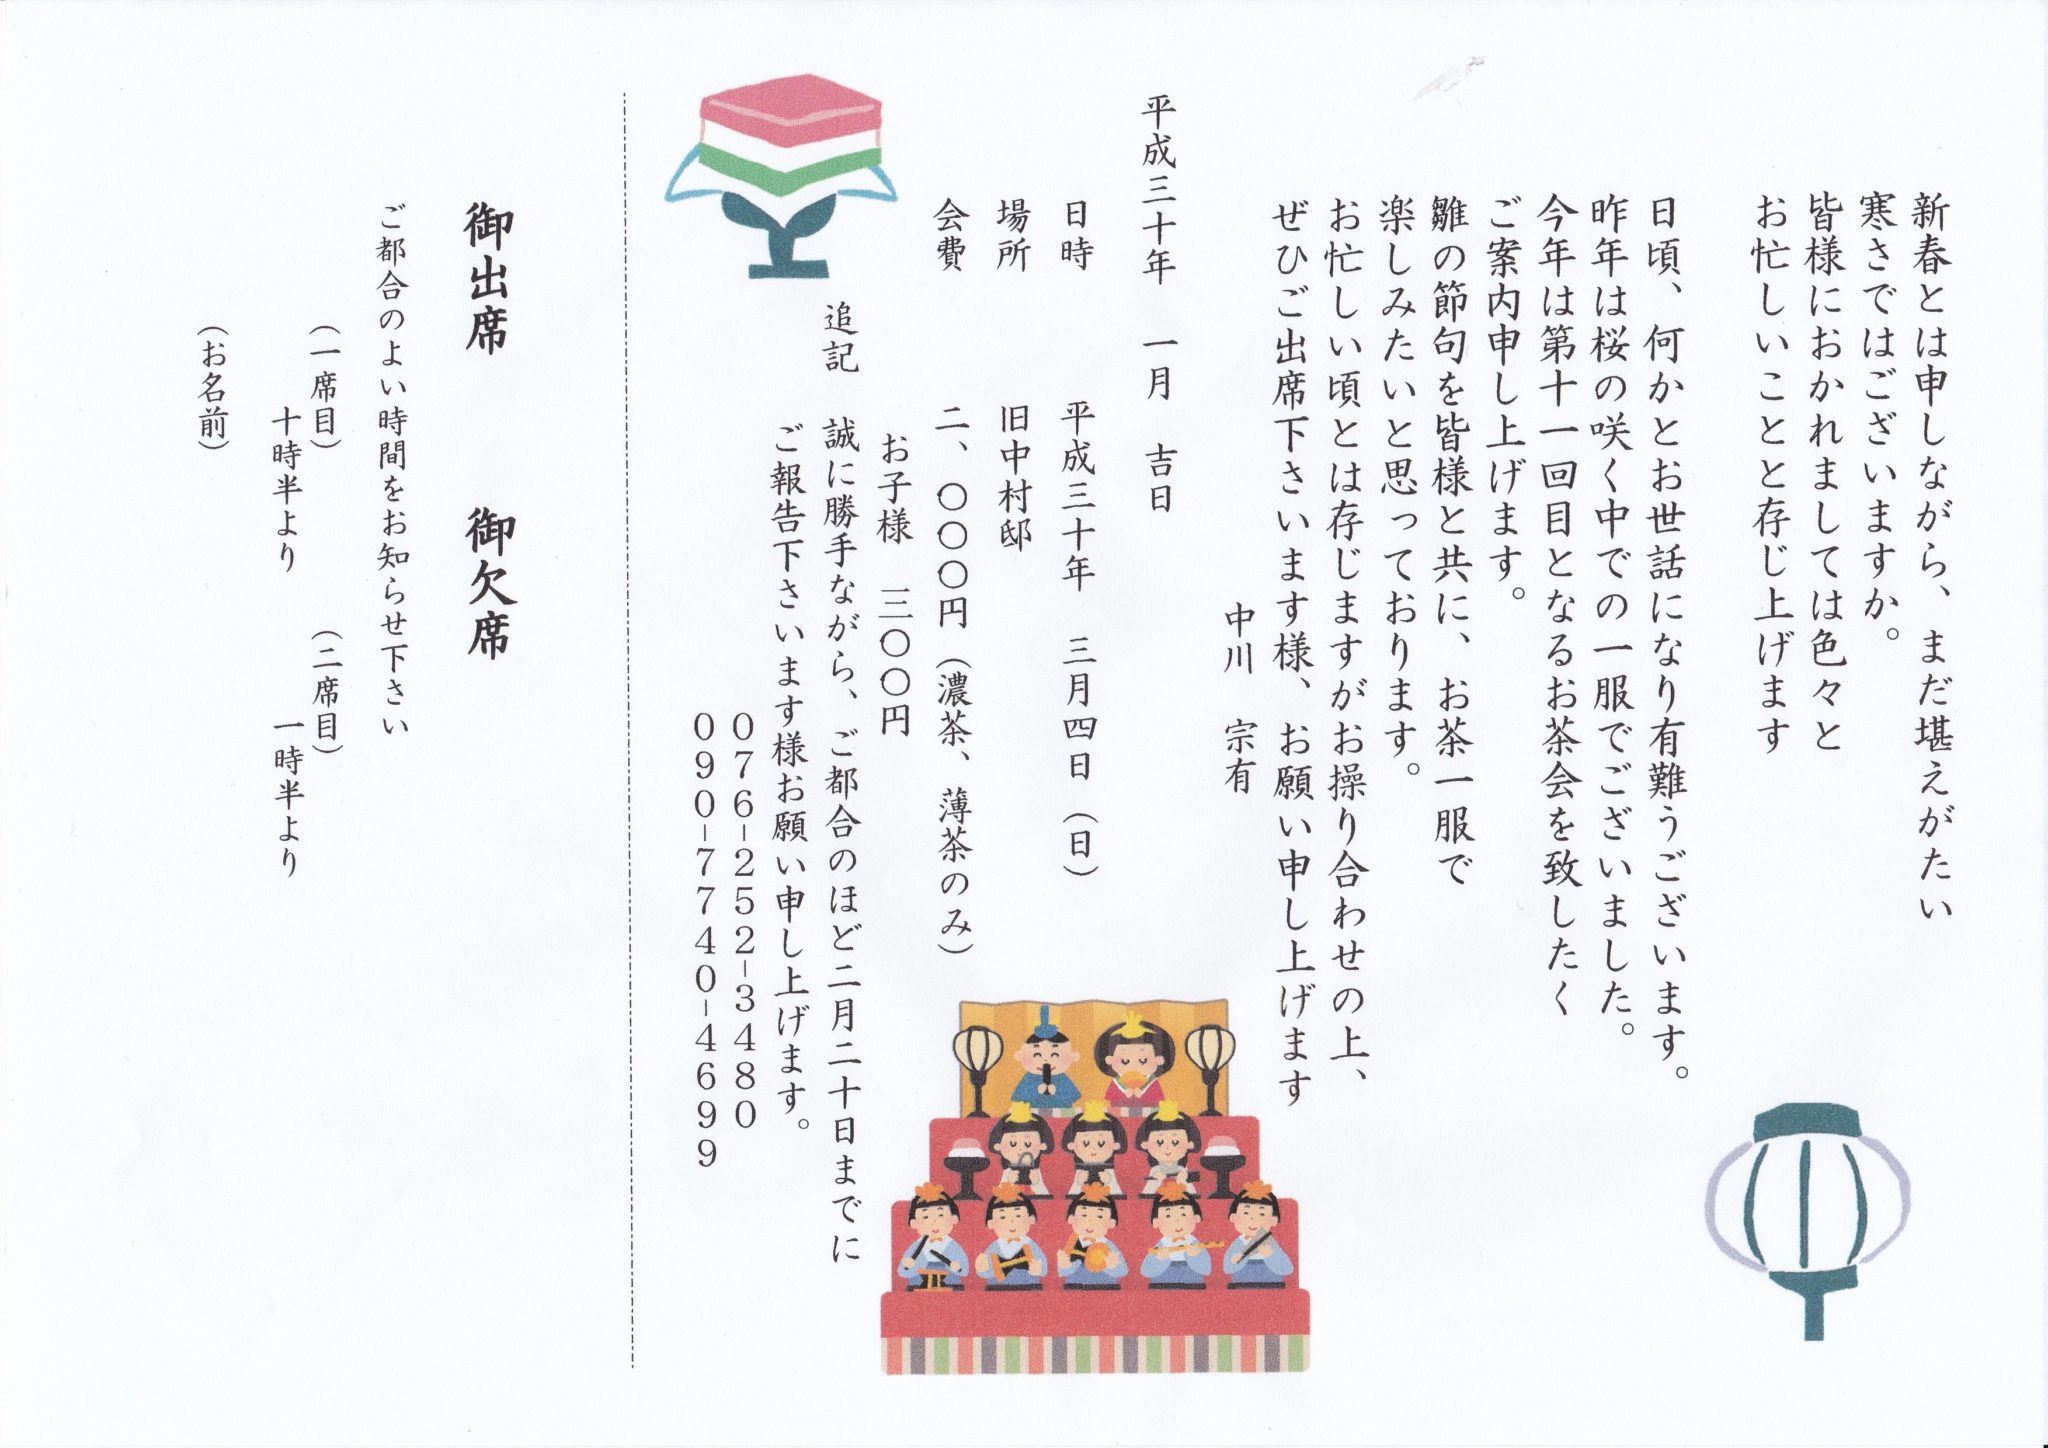 新春とは申しながら、まだ堪えがたい
寒さではございますか。
皆様におかれましては色々と
お忙しいことと存じ上げます
日頃、何かとお世話になり有難うございます。
昨年は桜の咲く中での一服でございました。
今年は第十一回目となるお茶会を致したく
ご案内申し上げます。
雛の節句を皆様と共に、お茶一服で
楽しみたいと思っております。
お忙しい頃とは存じますがお操り合わせの上、
ぜひご出席下さいます様、お願い申し上げます
中川　宗有
平成三十年　一月　吉日
日時　平成三十年　三月四日（日）
場所　旧中村邸
会費　二、〇〇〇円（濃茶、薄茶のみ）
お子様　三〇〇円
追記　誠に勝手ながら、ご都合のほど二月二十日までに
ご報告下さいます様お願い申し上げます。
076-252-3480
090-7740-4699
御出席　御欠席
ご都合のよい時間をお知らせ下さい
（一席目）　（二席目）
十時半より　一時半より
（お名前）